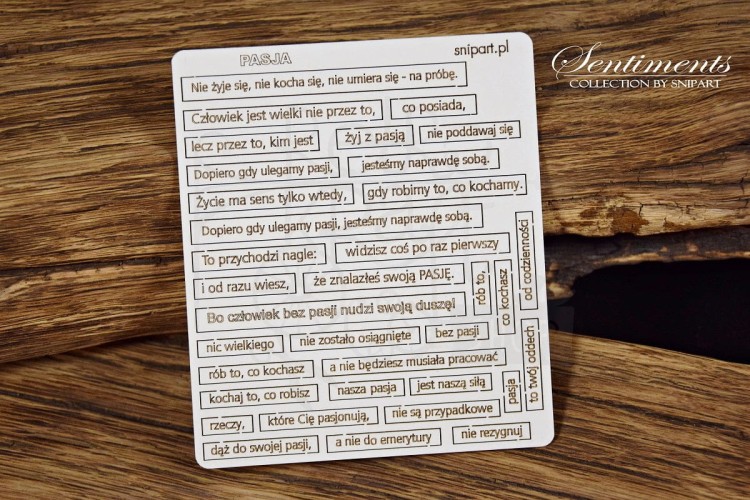 PASJA
snipart.pl
Sentiments
COLLECTION BY SNIPART
Nie żyje się, nie kocha się, nie umiera się - na próbę.
Człowiek jest wielki nie przez to, co posiada,
lecz przez to, kim jest żyj z pasją nie poddawaj się
Dopiero gdy ulegamy pasji, jesteśmy naprawdę sobą.
Życie ma sens tylko wtedy, gdy robimy to, co kochamy.
Dopiero gdy ulegamy pasji, jesteśmy naprawdę sobą.
To przychodzi nagle: widzisz coś po raz pierwszy
i od razu wiesz, że znalazłeś swoją PASJĘ.
Bo człowiek bez pasji nudzi swoją duszę!
nic wielkiego nie zostało osiągnięte bez pasji
rób to, co kochasz a nie będziesz musiała pracować
kochaj to, co robisz nasza pasja jest naszą siłą
rzeczy, które Cię pasjonują, nie są przypadkowe
dąż do swojej pasji, a nie do emerytury nie rezygnuj
rób to,
co kochasz
od codzienności
pasja
to twój oddech